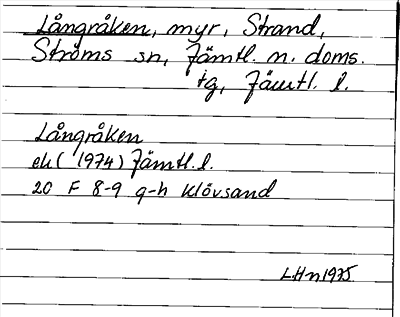 Långråken, myr, Strand,
Ströms sn, Jämtl. n. doms.
tg, Jämtl. l.
Långråken
ek (1974) Jämtl. l.
20 F 8-9 g-h Klövsand
LHn 1975